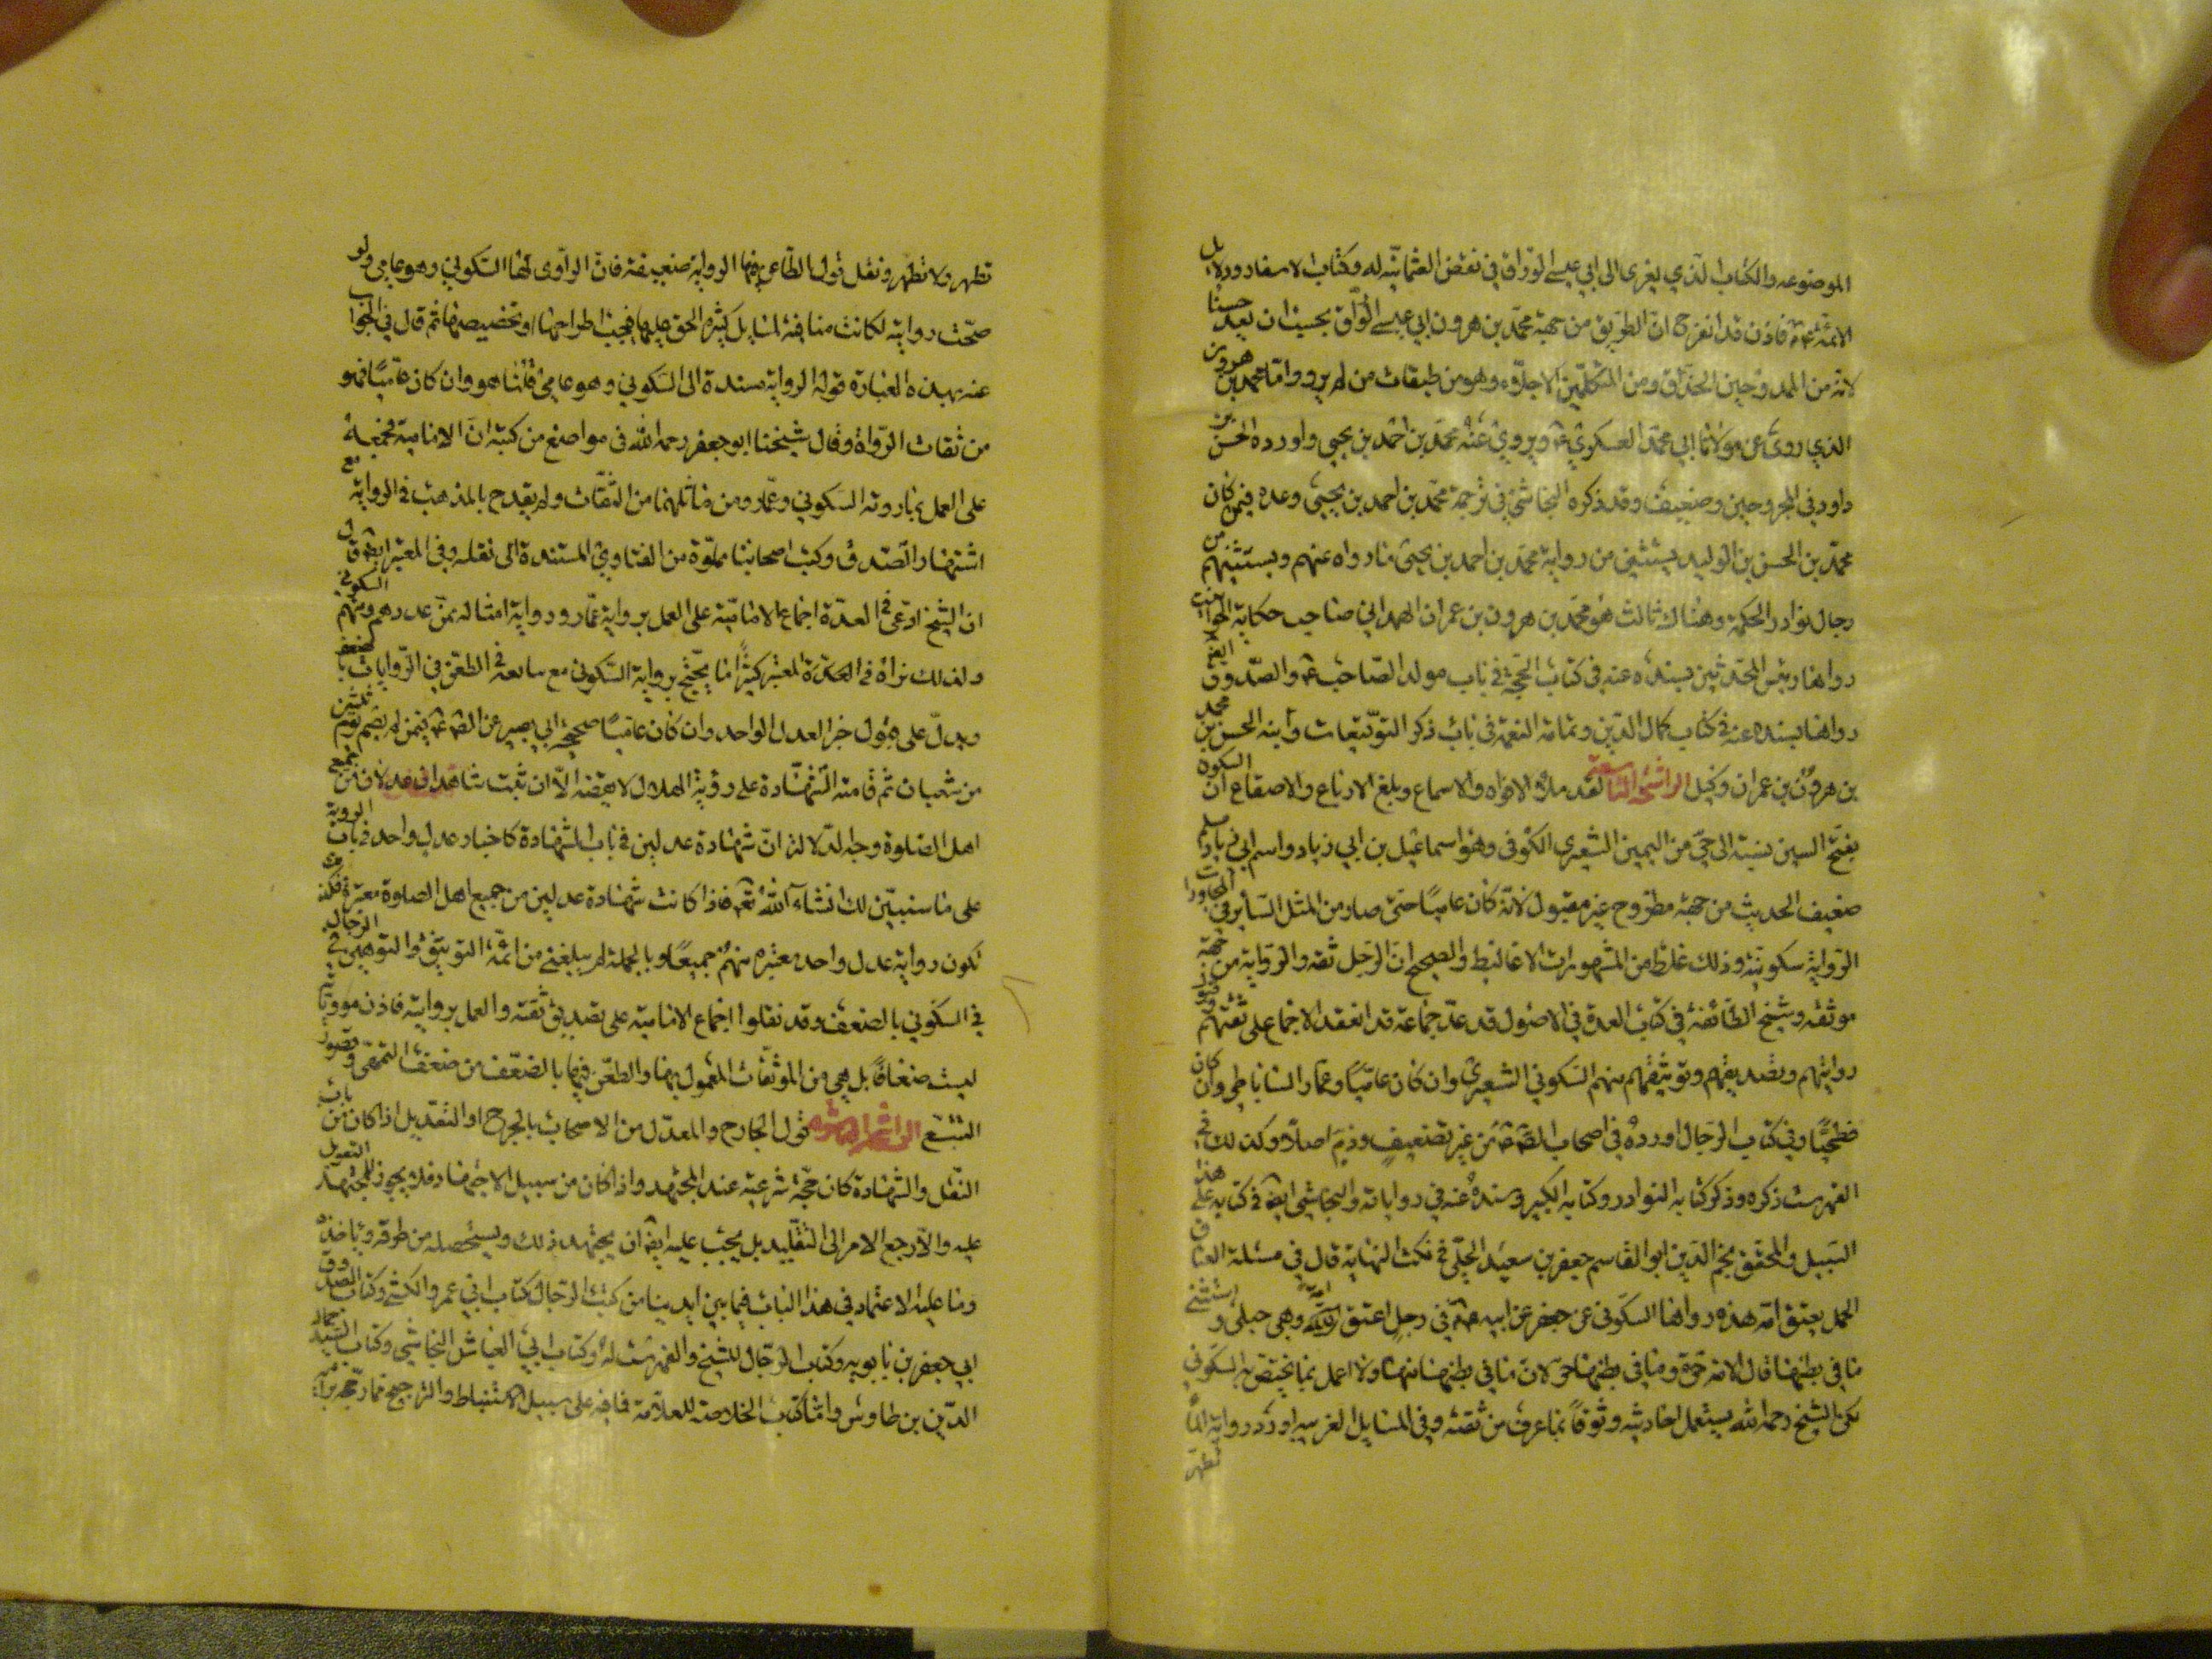 الموضوعه والكتاب الذي يعزى الى ابي عيسى الوراق في نقض العثمانية له وكتاب الاسفار ودلايل
الائمة ع فاذن قد انصرح ان الطريق من جهة محمد بن هرون ابي عيسى الوراق بحيث ان يعد حسنا
لانه من الممدوحين الحذاق ومن المتكلمين الاجلاء وهو من طبقات من لم يرو واما محمد بن هرون
الذي روى عن مولانا ابي محمد العسكري ع ويروي عنه محمد بن احمد بن يحيى واورده الحسن بن
داود في المجروحين وضعيف وقد ذكره النجاشي في ترجمة محمد بن احمد بن يحيى وعده فيمن كان
محمد بن الحسن بن الوليد يستثنى من رواية محمد بن احمد بن يحيى ما رواه عنهم ويستثنيهم من
رجال نوادر الحكمة وهناك ثالث هو محمد بن هرون بن عمران الهمداني صاحب حكاية الحوانيت
رواها رئيس المحدثين بسنده عنه في كتاب الحجة في باب مولد الصاحب ع والصدوق ايضا
رواها بسنده عنه في كتاب كمال الدين وتمام النعمة في باب ذكر التوقيعات وابنه الحسن بن محمد
بن هرون بن عمران وكيل الراشحة التاسعة لقد ملأ الافواه والاسماع وبلغ الارباع والاصقاع ان السكوني
بفتح السين نسبة الى حي من اليمين الشعيري الكوفي وهو اسماعيل بن ابي زياد واسم ابي زياد مسلم
ضعيف الحديث من جهة مطروح غير مقبول لانه كان عاميا حتى صار من المثل الساير في المحاورات
الرواية سكونية وذلك غلط من مشهورات الاغاليط والصحيح ان الرجل ثقة والرواية من جهة
موثقه وشيخ الطائفة في كتاب العدة في الاصول قد عد جماعة قد انعقد الاجماع على ثقتهم وقبول
روايتهم وتصديقهم وتوثيقهم منهم السكوني الشعيري وان كان عاميا وعمار الساباطي وان كان
فطحيا وفي كتاب الرجال اورده في اصحاب الصادق ع من غير تضعيف وذم اصلا وكذلك في
الفهرست ذكره وذكر كتابه النوادر وكتابه الكبير وسنده عنه في رواياته والنجاشي ايضا في كتابه على هذا
السبيل والمحقق نجم الدين ابو القاسم جعفر بن سعيد الحلي في نكت النهاية قال في مسئلة العتاق
الحمل يعتق امه هذه رواها السكوني عن جعفر عن ابيه ع في رجل اعتق امته وهي حبلى واستثنى
ما في بطنها قال الامة حرة وما في بطنها حر لان ما في بطنها منها ولا اعمل بما يختص به السكوني
لكن الشيخ رحمه الله يستعمل احاديثه وثوقا بما عرف من ثقته وفي المسايل الغريبه اورد رواية الماء
تطهر
تطهر ولا تطهر ونقل قول الطاعن فيها الرواية ضعيفة فان الراوى لها السكوني وهو عامي ولو
صحت رواية لكانت منافية لمسايل كثيرة الحق عليها فيجب اطراحها او تخصيصها ثم قال في الجواب
عنه بهذه العبارة قوله الرواية مسندة الى السكوني وهو عامي قلنا هو وان كان عاميا فهو
من ثقات الرواة وقال شيخنا ابو جعفر رحمه الله في مواضع من كتبه ان الامامية مجمعة
على العمل بما رواه السكوني وعمار ومن ماثلهما من الثقات ولم يقدح بالمذهب في الرواية مع
اشتهار الصدق وكتب اصحابنا مملوة من الفتاوي المستندة الى نقله وفي المعتبر ايضا قال
ان الشيخ ادعى في العدة اجماع الامامية على العمل برواية عمار ورواية امثاله ممن عددهم ومنهم السكوني
ولذلك نراه في المعتبر كثيرا ما يحتج برواية السكوني مع مبالغته في الطعن في الروايات بالضعف
ويدل على قبول خبر العدل الواحد وان كان عاميا صحيحة ابي بصير عن الصادق ع فيمن لم يصم يوم ثلثين
من شعبان ثم قامت الشهادة على رؤية الهلال لا يقضه الا ان تثبت شاهدان عدلان من جميع
اهل الصلوة وجه الدلالة ان شهادة عدلين في باب الشهادة كاخبار عدل واحد في باب الرواية
على ما سنبين لك انشاء الله تع فاذا كانت شهادة عدلين من جميع اهل الصلوة معتبرة فكذا
تكون رواية عدل واحد معتبرة منهم جميعا وبالجملة لم يبلغنى من ائمة التوثيق والتوهين في الرجال
في السكوني بالضعف وقد نقلوا اجماع الامامية على تصديق ثقته والعمل بروايته فاذن مروياته
ليست ضعافا بل هي من الموثقات المعمول بها والطعن فيها بالضعف من ضعف التمهر وقصور
التتبع الراشحة العاشرة قول الجارح والمعدل من الاصحاب بالجرح او التعديل اذا كان من باب
النقل والشهادة كان حجة شرعية عند المجتهد واذا كان من سبيل الاجتهاد فلا يجوز للمجتهد التعويل
عليه والا رجع الامر الى التقليد بل يجب عليه ايضا ان يجتهد ذلك ويستحصله من طرقه وياخذه
وما عليه الاعتماد في هذا الباب فيما بين ايدينا من كتب الرجال كتاب ابي عمرو الكشي وكتاب الصدوق
ابي جعفر بن بابويه وكتاب الرجال للشيخ والفهرست له وكتاب ابي العباس النجاشي وكتاب السيد جمال
الدين بن طاوس واما كتاب الخلاصة للعلامة فما فيه على سبيل الاستنباط والترجيح